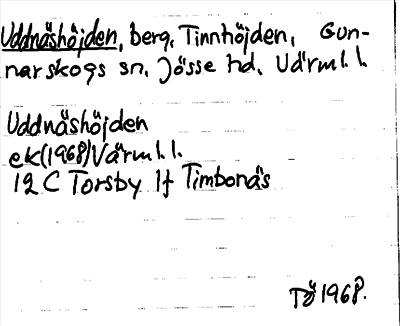 Uddnäshöjden, berg, Tinnhöjden, Gun-
narskogs sn. Jösse hd. Värml. l.
Uddnäshöjden
ek (1968) Värml. l.
12 C Torsby 1f Timbonäs
TÖ 1968.